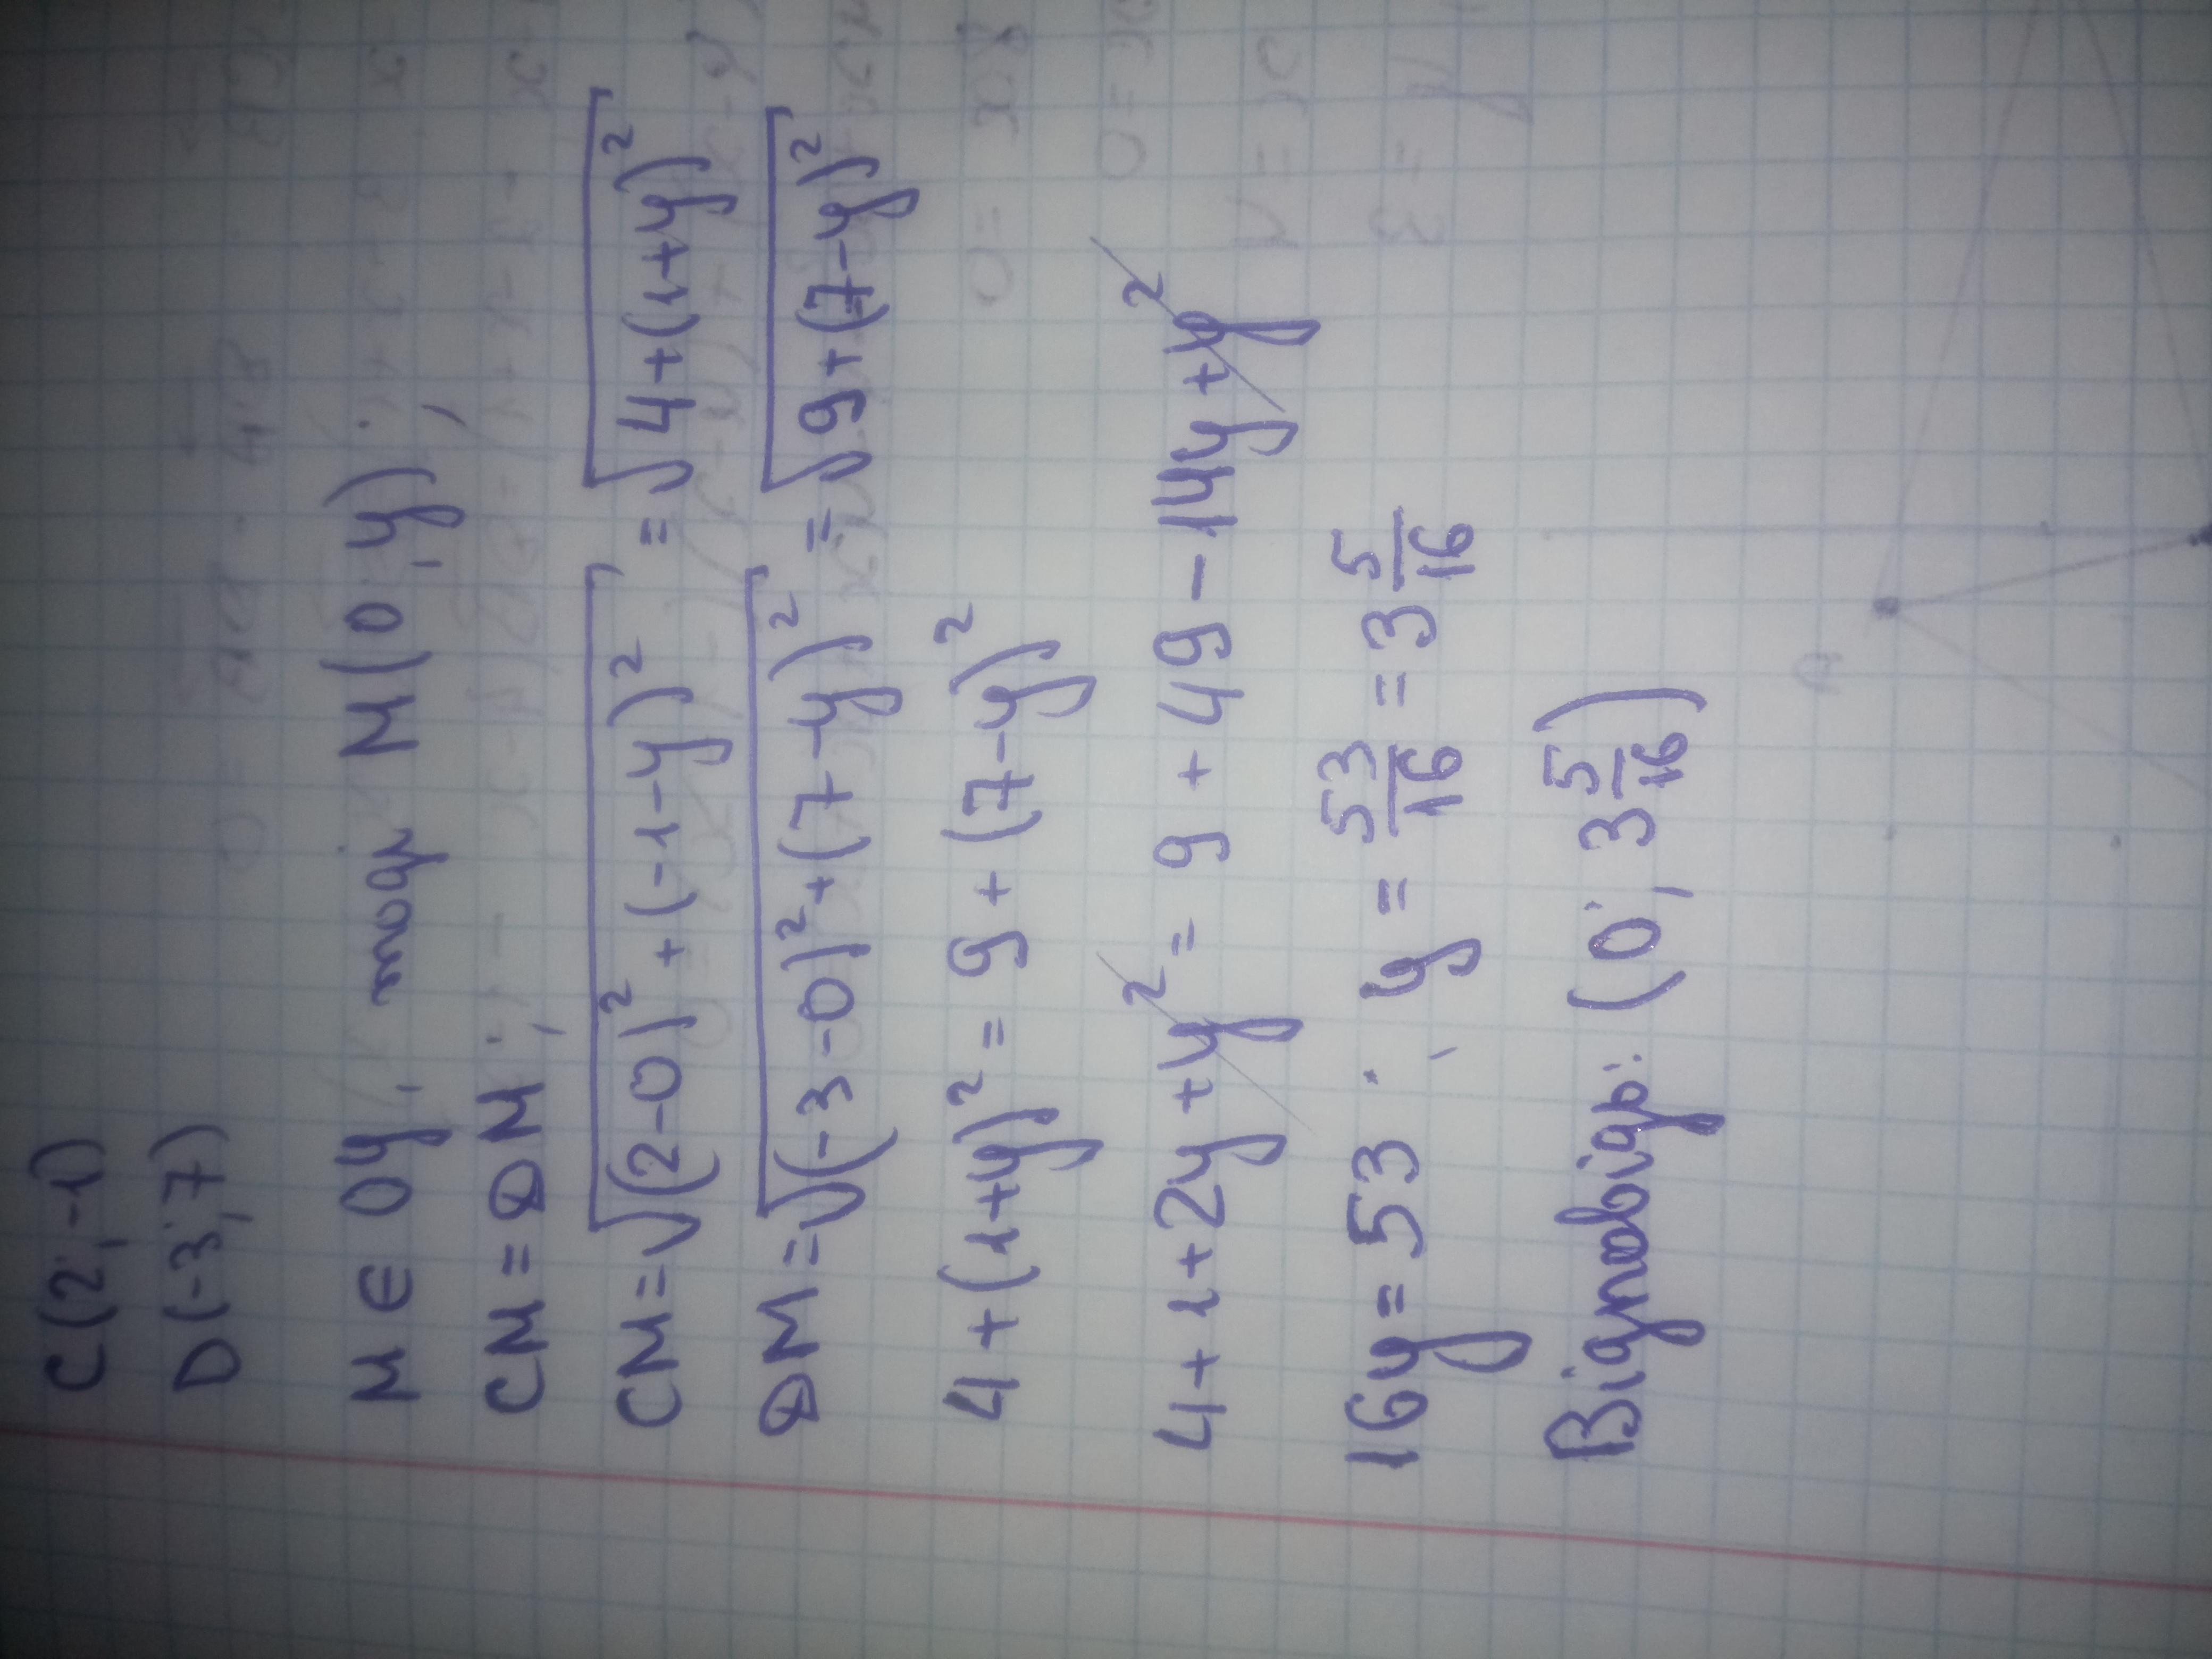 C(2;-1)
D(-3;7)
M ∈ Oy, тоді M(0;y);
CM = DM;
CM = √((2-0)² + (-1-y)²) = √(4+(1+y)²)
DM = √((-3-0)² + (7-y)²) = √(9+(7-y)²)
4 + (1+y)² = 9 + (7-y)²
4 + 1 + 2y + y² = 9 + 49 - 14y + y²
16y = 53; y = 53/16 = 3 5/16
Відповідь: (0; 3 5/16)